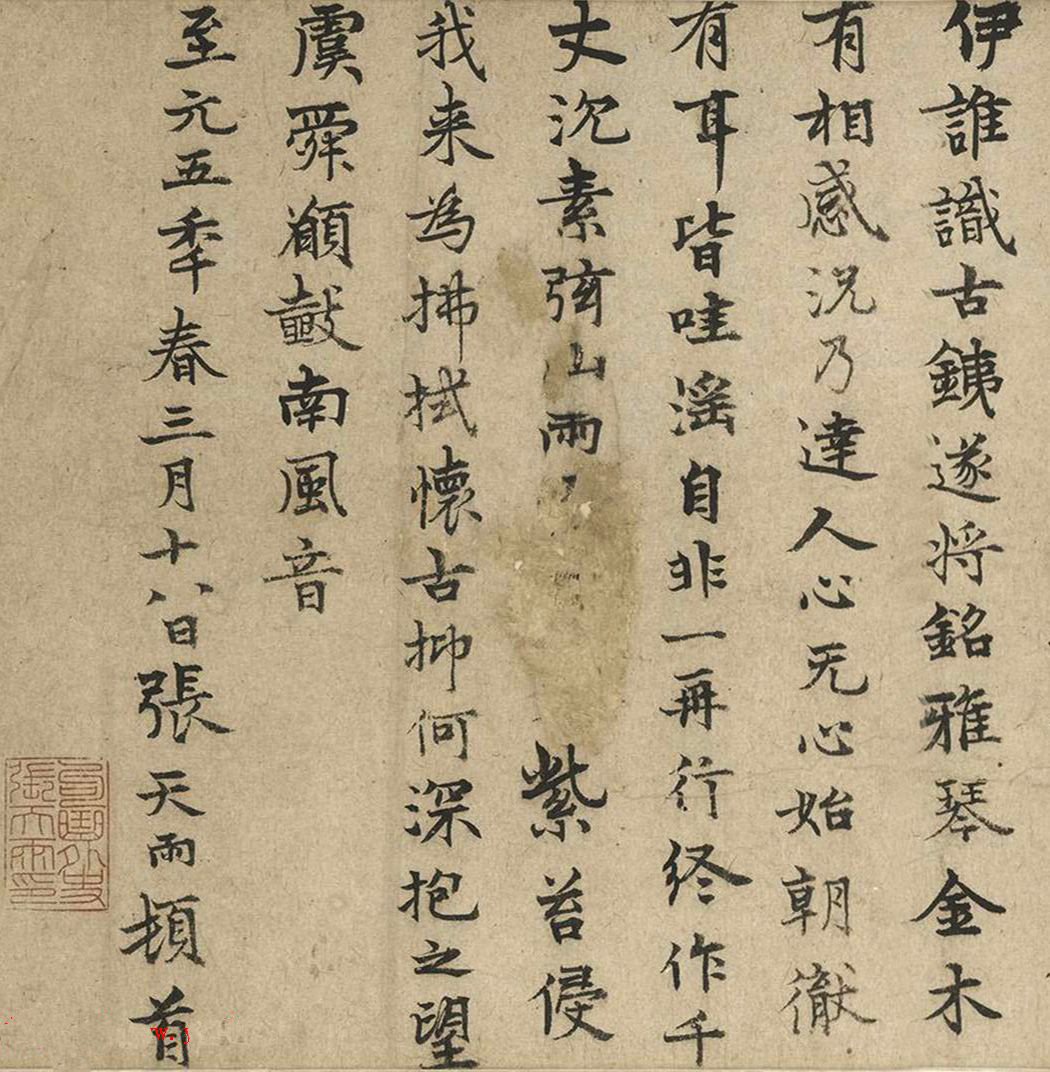 伊誰識古銕遂將銘雅琴金木
有相感況乃達人心无心始朝徹
有耳皆哇滛自非一再行終作千
丈沉素弦山雨紫苔侵
我来為拂拭懷古抑何深抱之望
虞舜顧鼓南風音
至元五年春三月十八日張天雨頓首